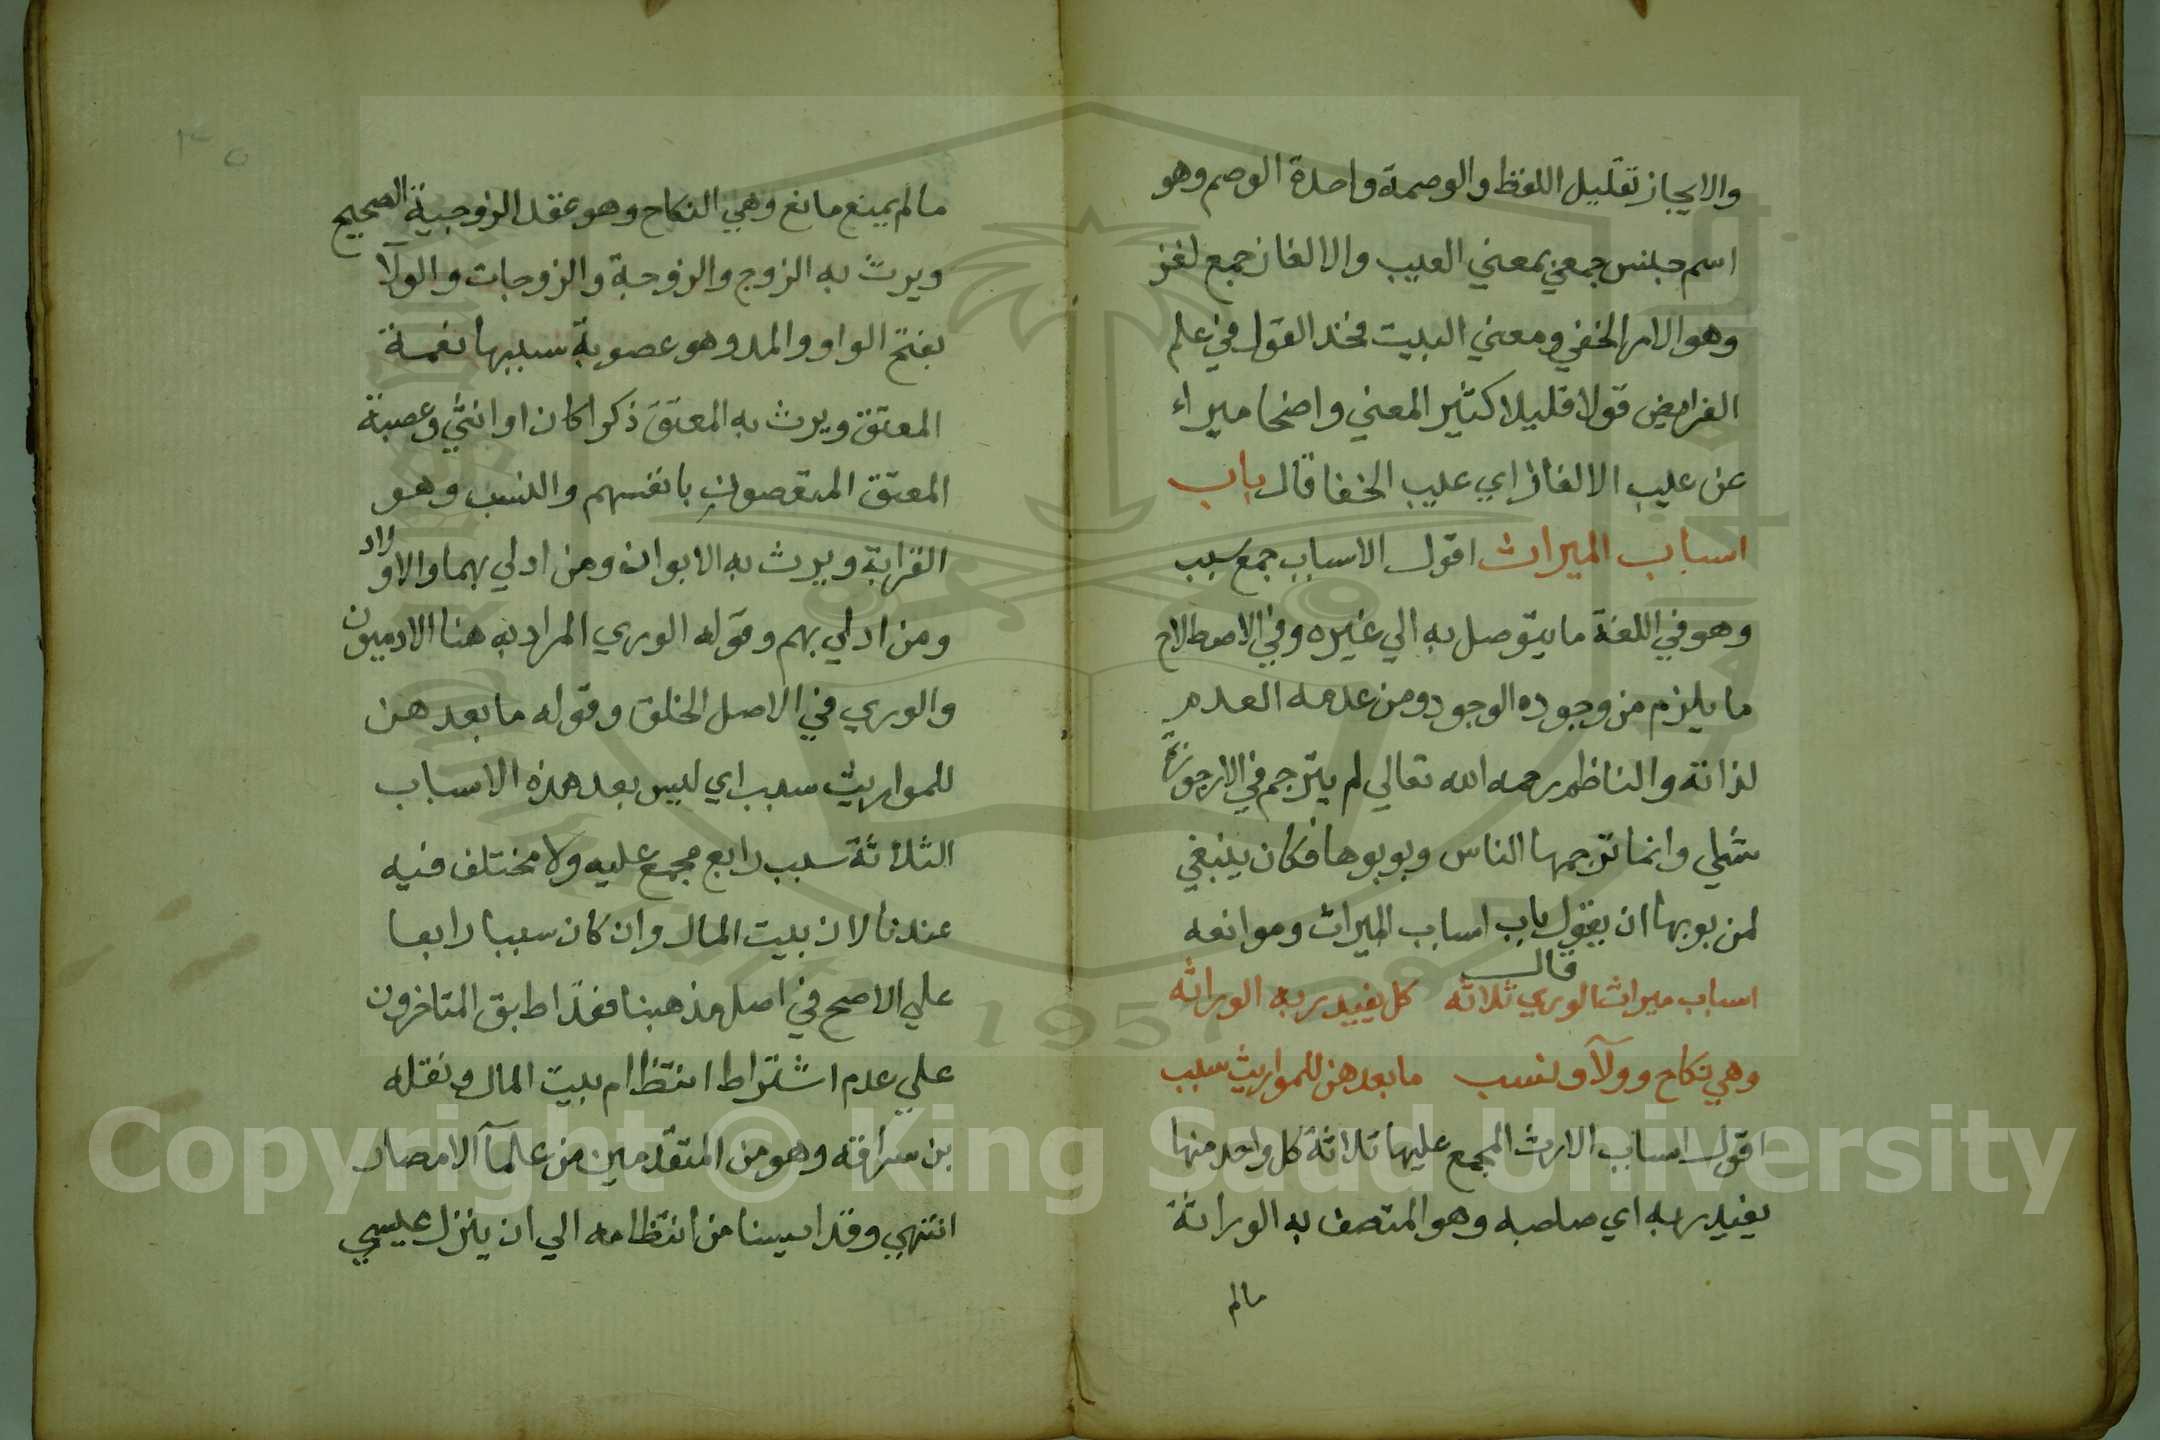 والايجاز تقليل اللفظ والوصمة واحدة الوصم وهو
اسم جنس جمعي بمعني العيب والالغاز جمع لغز
وهو الامر الخفي ومعني البيت فخذ القول في علم
الفرايض قولا قليلا كثير المعني واضحا مبراء
عن عيب الالغاز اي عيب الخفا قال باب
اسباب الميراث اقول الاسباب جمع سبب
وهو في اللغة ما يتوصل به الي غيره وفي الاصطلاح
ما يلزم من وجوده الوجود ومن عدمه العدم
لذاته والناظم رحمه الله تعالي لم يترجم في الارجوزة
شيأ وانما ترجمها الناس وبوبوها فكان ينبغي
لمن بوبها ان يقول باب اسباب الميراث وموانعه
قال
اسباب ميراث الوري ثلاثه كل يفيد ربه الوراثه
وهي نكاح وولآ ونسب ما بعدهن للمواريث سبب
اقول اسباب الارث المجمع عليها ثلاثة كل واحد منها
يفيد ربه اي صاحبه وهو المتصف به الوراثة
مالم
مالم يمنع مانع وهي النكاح وهو عقد الزوجية الصحيح
ويرث به الزوج والزوجة والزوجات والولآ
بفتح الواو والمد وهو عصوبة سببها نعمة
المعتق ويرث به المعتق ذكرا كان او انثي وعصبة
المعتق المتعصبون بانفسهم والنسب وهو
القرابة ويرث به الابوان ومن ادلي بهما والاولاد
ومن ادلي بهم وقوله الوري المراد به هنا الادميون
والوري في الاصل الخلق وقوله ما بعدهن
للمواريث سبب اي ليس بعد هذه الاسباب
الثلاثة سبب رابع مجمع عليه ولا مختلف فيه
عندنا لان بيت المال وان كان سببا رابعا
علي الاصح في اصل مذهبنا فقد اطبق المتاخرون
علي عدم اشتراط انتظام بيت المال ونقله
بن سراقه وهو من المتقدمين من علمآ الامصار
انتهي وقد ايسنا من انتظامه الي ان ينزل عيسي
Copyright © King Saud University
1957